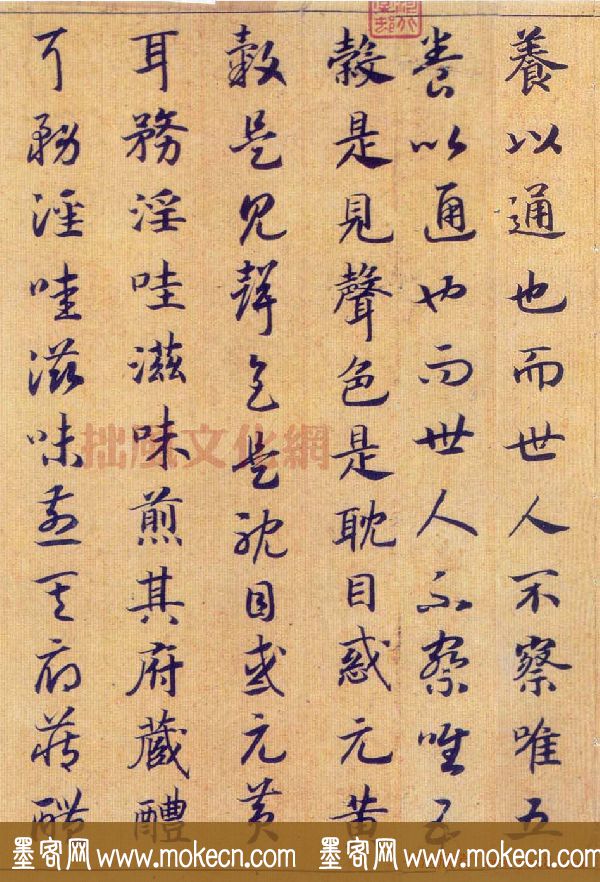 養以通也而世人不察唯五
養以通也而世人不察唯五
榖是見聲色是耽目惑元黄
榖是見聲色是耽目惑元黄
耳務淫哇滋味煎其府藏醴
耳務淫哇滋味煎其府藏醴
拙風文化網
墨客网 www.mokecn.com 墨客网 www.mokecn.com